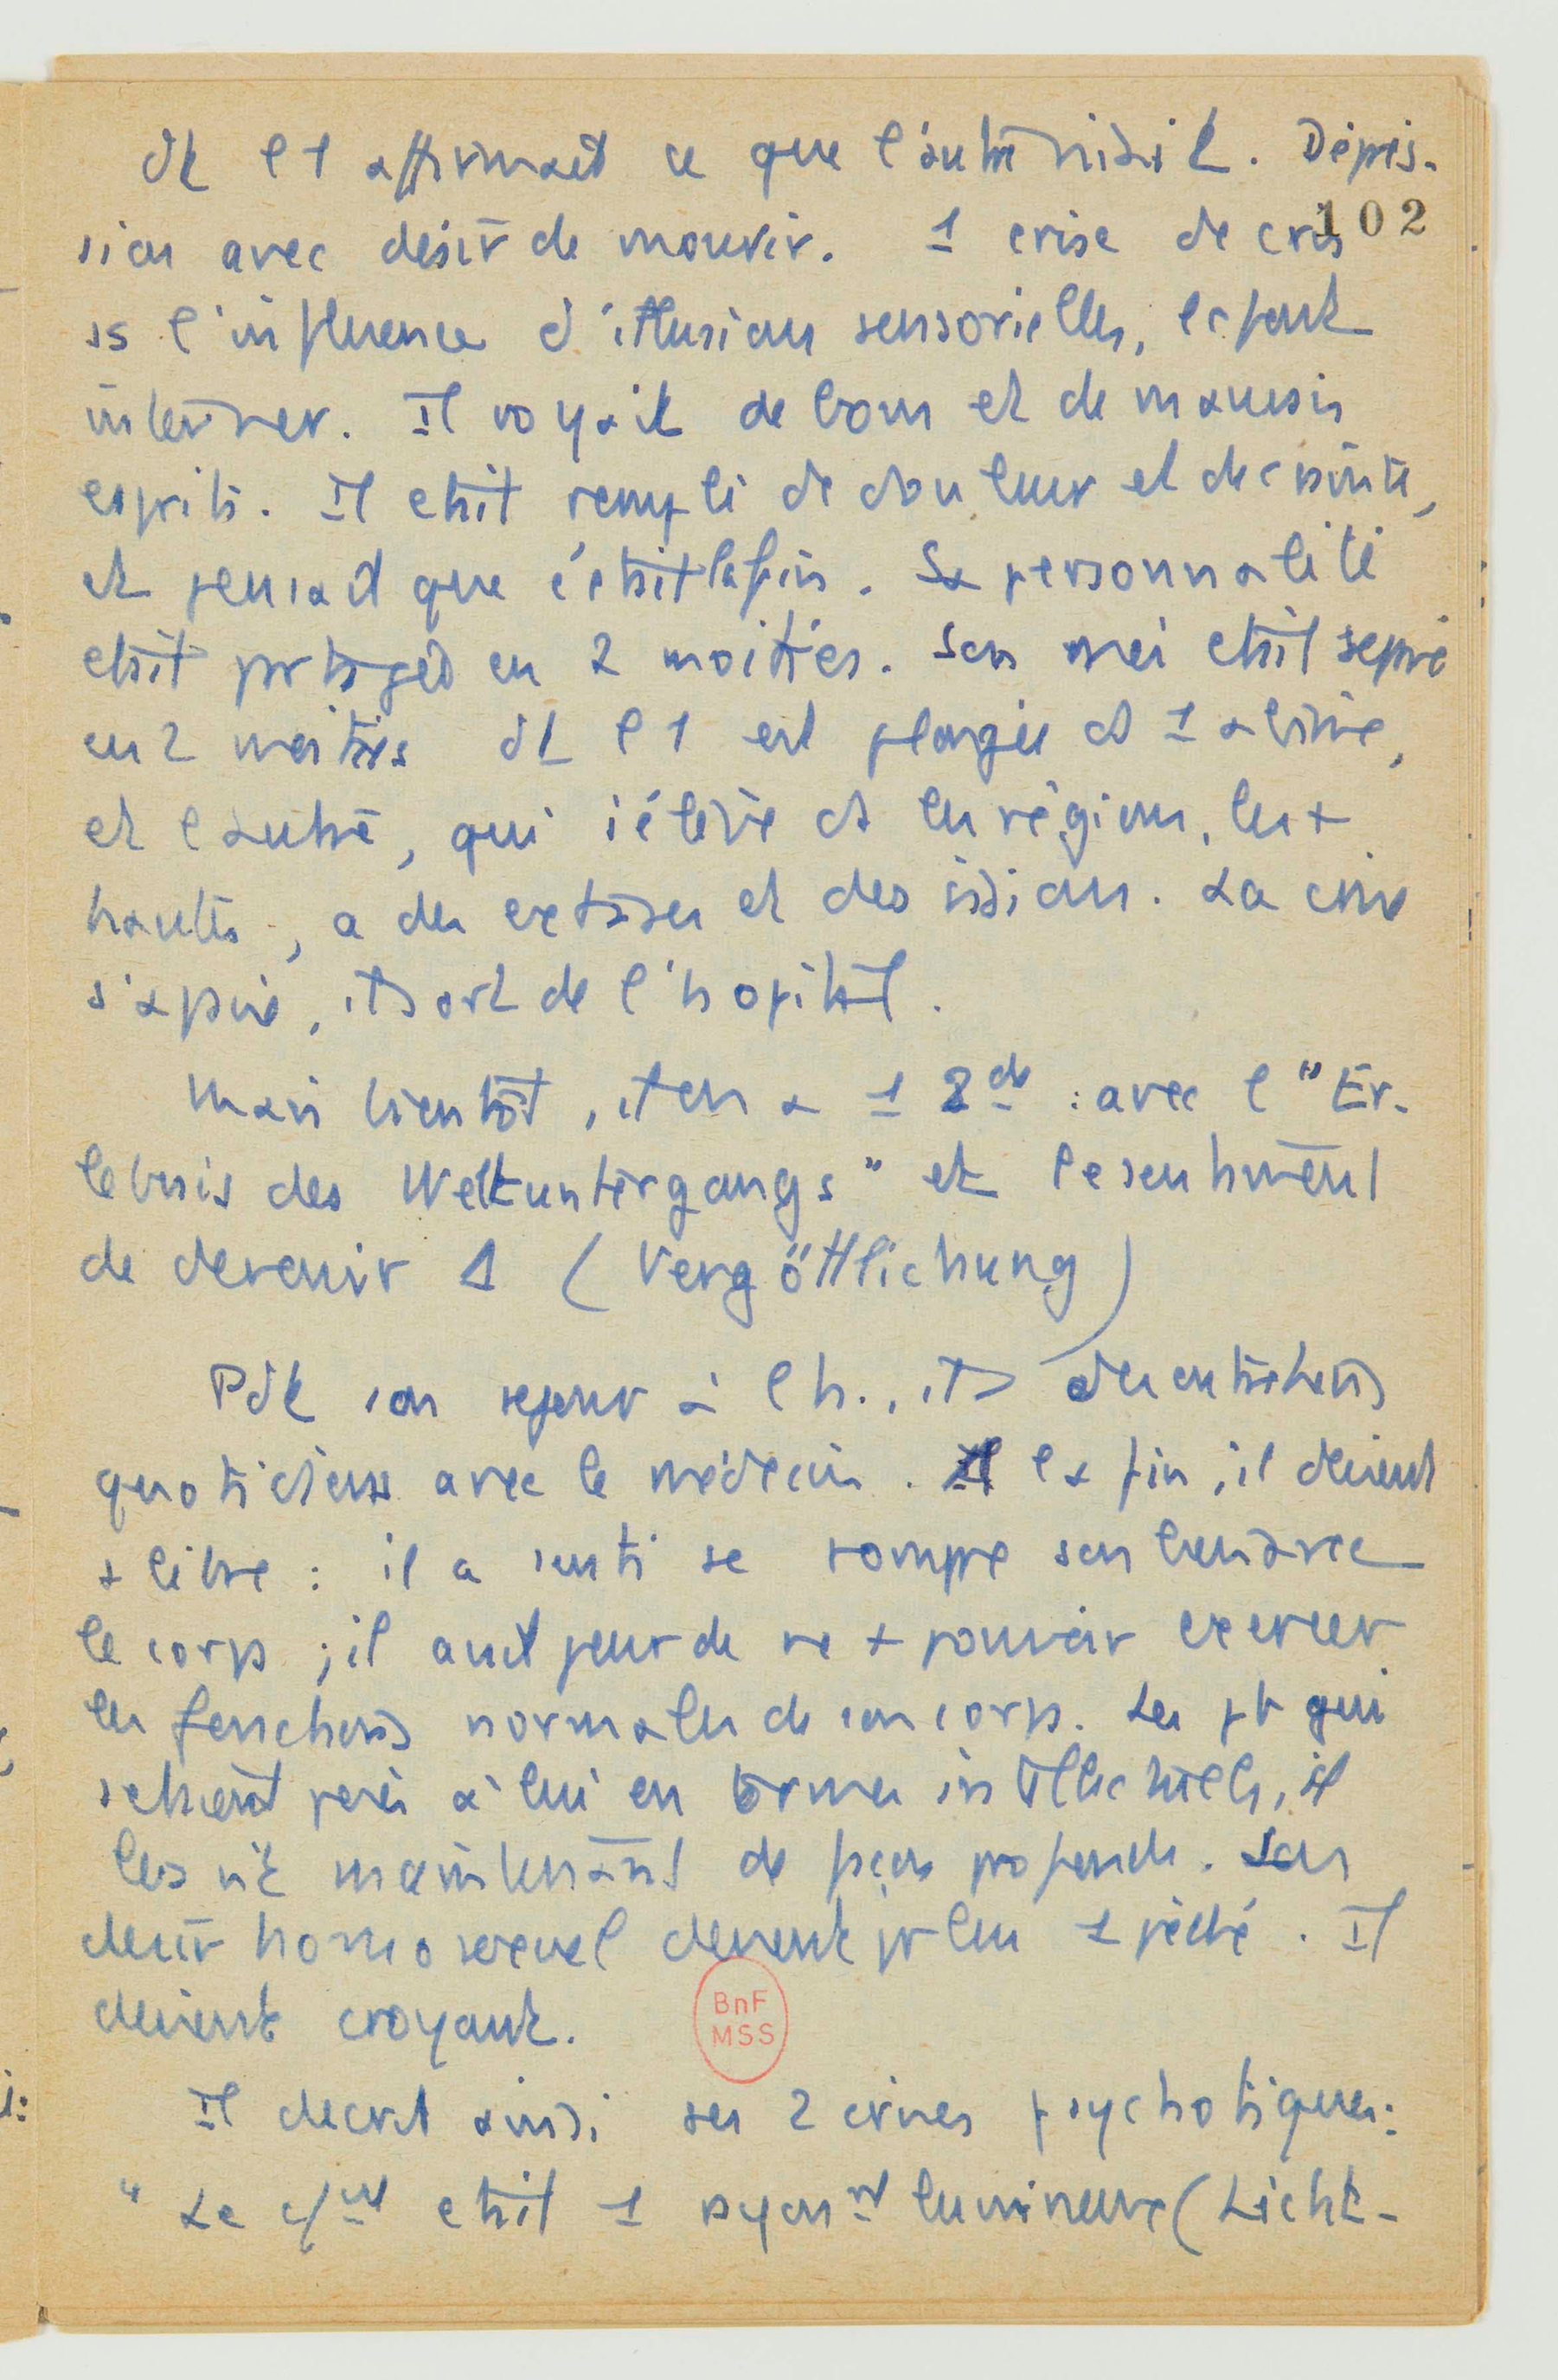 dt l'1 affirmait ce que l'autre niait. Dépres-
102
sion avec désir de mourir. 1 crise de cris
ss l'influence d'illusions sensorielles, le font
interner. Il voyait de bons et de mauvais
esprits. Il était rempli de douleur et de crainte,
et pensait que c'était la fin. Sa personnalité
était partagée en 2 moitiés. Son moi était séparé
en 2 moitiés dt l'1 est plongée ds 1 abîme,
et l'autre, qui s'élève ds les régions les +
hautes, a des extases et des visions. La crise
s'apaise, il sort de l'hôpital.
Mais bientôt, il en a 1 2de : avec l'"Er-
lebnis des Weltuntergangs" et le sentiment
de devenir 1 (Vergöttlichung)
Pdt son séjour à l'h., il a des entretiens
quotidiens avec le médecin. A la fin, il devient
+ libre : il a senti se rompre son lien avec
le corps ; il avait peur de ne + pouvoir exercer
les fonctions normales de son corps. Les pb qui
s'étaient posés à lui en termes intellectuels, il
les vit maintenant de façon profonde. Son
désir homosexuel devient pr lui 1 péché. Il
devient croyant.
BnF
MSS
Il décrit ainsi ses 2 crises psychotiques :
" Le cft était 1 rayont lumineux (Licht-